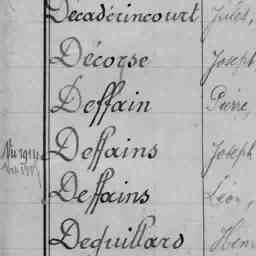 Decadérincourt Jules,
Décorse Joseph
Deffain Pierre,
Deffains Joseph
Deffains Léon,
Dequillard Hen